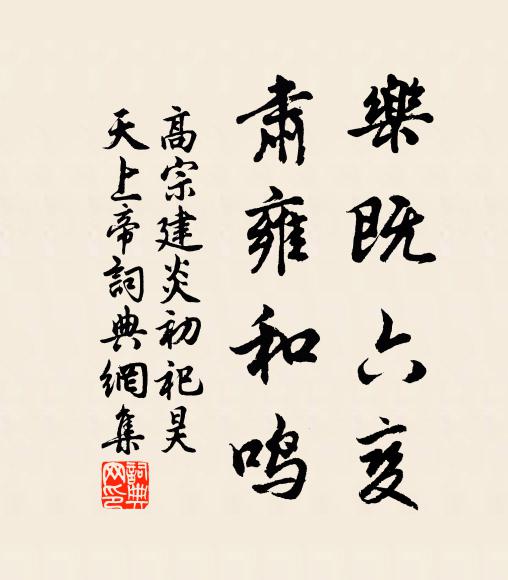 樂既六变
肅雍和鸣
高宗建炎初祀昊
天上帝詞典網集
詞典
网印